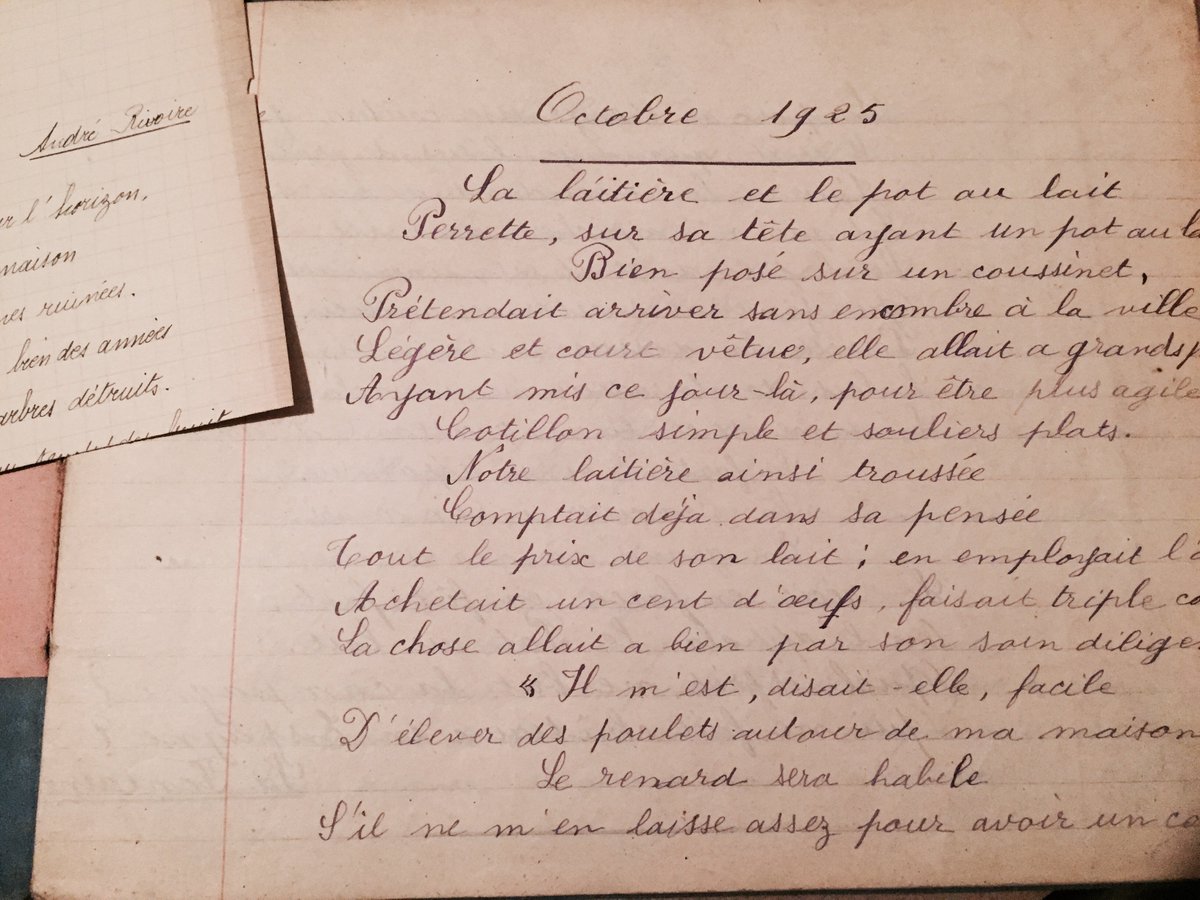 André Rivoire
l'horizon,
maison
ruinées.
bien des années
arbres détruits.
Octobre 1925
La láitière et le pot au lait
Perrette, sur sa tête ayant un pot au
Bien posé sur un coussinet,
Prétendait arriver sans encombre à la ville
Légère et court vêtue, elle allait a grands
Ayant mis ce jour-là, pour être plus agile
Cotillon simple et souliers plats.
Notre laitière ainsi troussée
Comptait déja dans sa pensée
Tout le prix de son lait ; en employait
Achetait un cent d'œufs, faisait triple
La chose allait a bien par son soin
" Il m'est, disait-elle, facile
D'élever des poulets autour de ma maison
Le renard sera habile
S'il ne m'en laisse assez pour avoir un